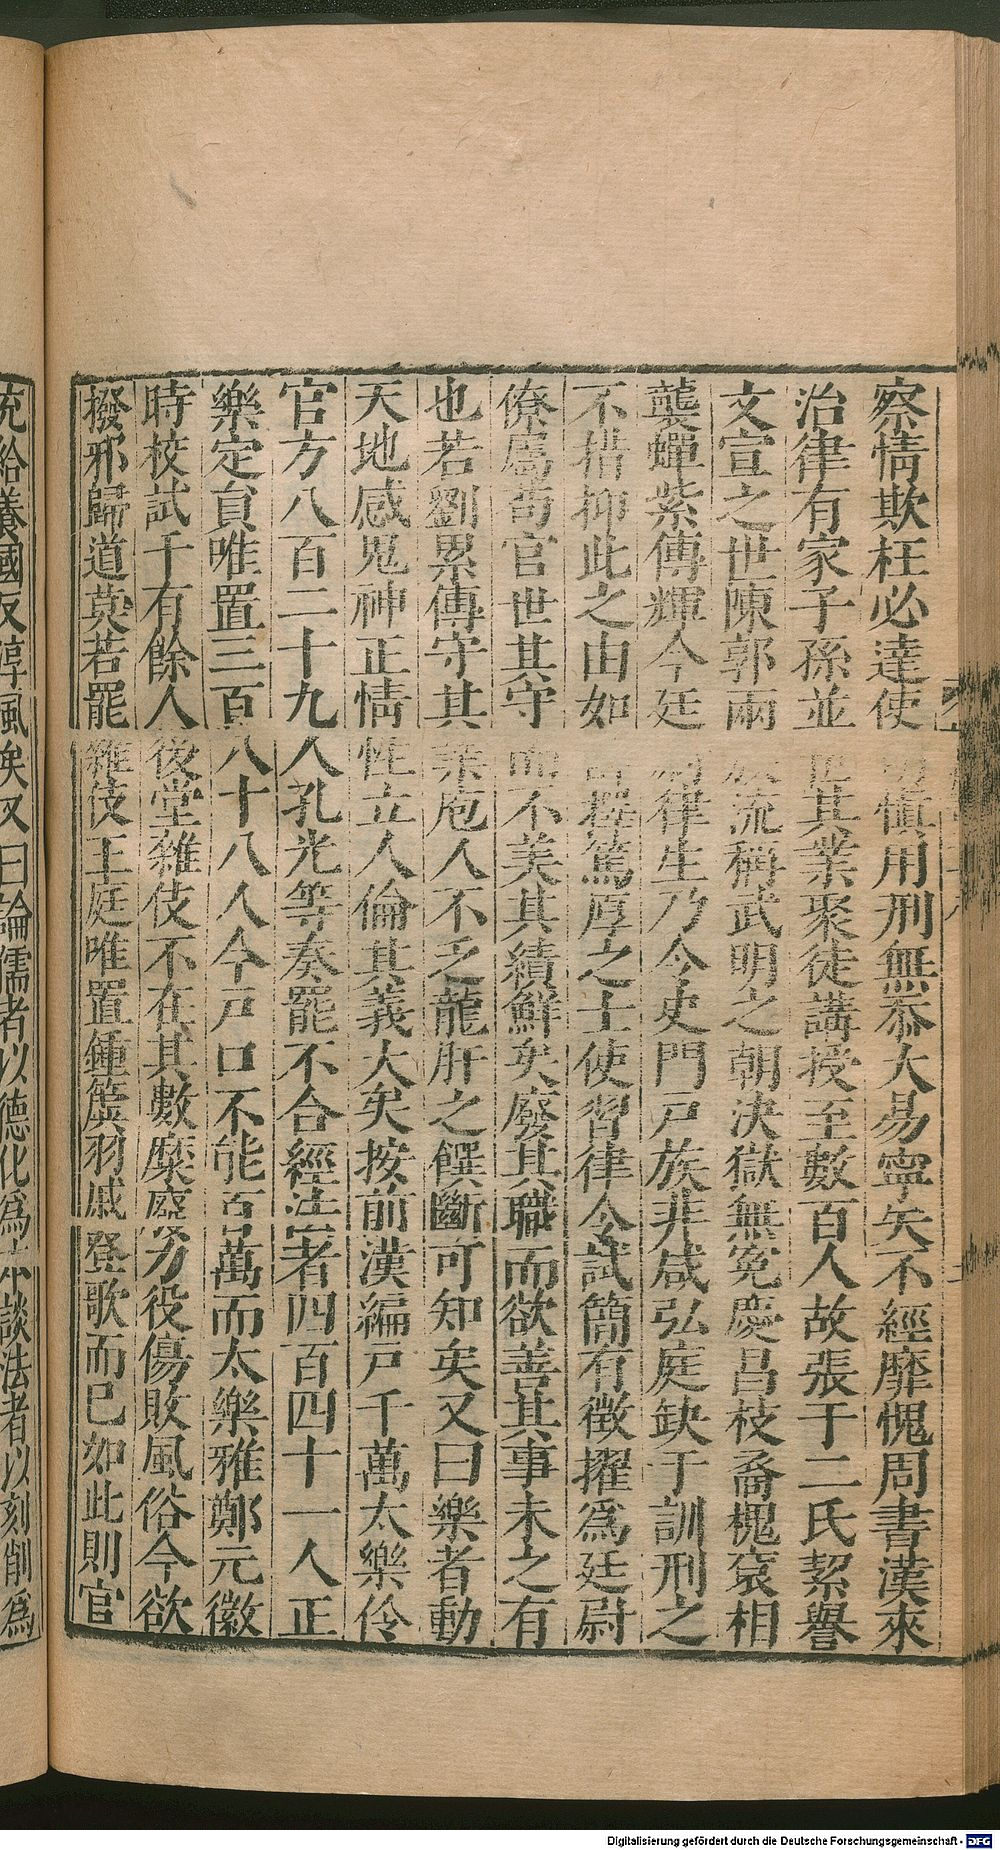 察情欺枉必達使 慎用刑無忝大易寧失不經靡愧周書漢來
治律有家子孫並 其業聚徒講授至數百人故張于二氏絜譽
文宣之世陳郭兩 流稱武明之朝決獄無冤慶昌枝裔槐袞相
襲蟬紫傳輝今廷 律生乃令史門戶族非咸弘庭缺于訓刑之
不措抑此之由如 釋篤厚之士使習律令試簡有徵擢爲廷尉
僚屬苟官世其守 不美其績鮮矣廢其職而欲善其事未之有
也若劉累傳守其 業庖人不乏龍肝之饌斷可知矣又曰樂者動
天地感鬼神正情性立人倫其義大矣按前漢編戶千萬太樂伶
官方八百二十九人孔光等奏罷不合經法者四百四十一人正
樂定員唯置三百八十八人今戶口不能百萬而太樂雅鄭元徽
時校試千有餘人後堂雜伎不在其數糜廢力役傷敗風俗今欲
撥邪歸道莫若罷雜伎王庭唯置鍾簴羽戚登歌而已如此則官
充給養國反淳風矣又曰論儒者以德化爲 談法者以刻削爲
Digitalisierung gefördert durch die Deutsche Forschungsgemeinschaft - DFG